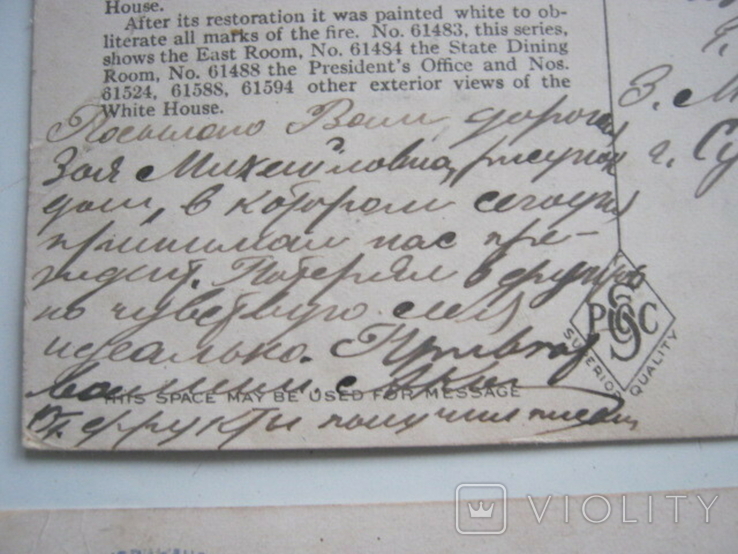 House.
After its restoration it was painted white to ob-
literate all marks of the fire. No. 61483, this series,
shows the East Room, No. 61484 the State Dining
Room, No. 61488 the President's Office and Nos.
61524, 61588, 61594 other exterior views of the
White House.
Посылаю Вам дорогая
Зоя Михайловна, рисунок
дом, в котором сегодня
принимал нас пре-
зидент. Потерял
но чувствую себя
идеально. Привет
вашим.
THIS SPACE MAY BE USED FOR MESSAGE
фрукты получил
З. М
г. Су
PSCC
SUPERIOR QUALITY
VIOLITY